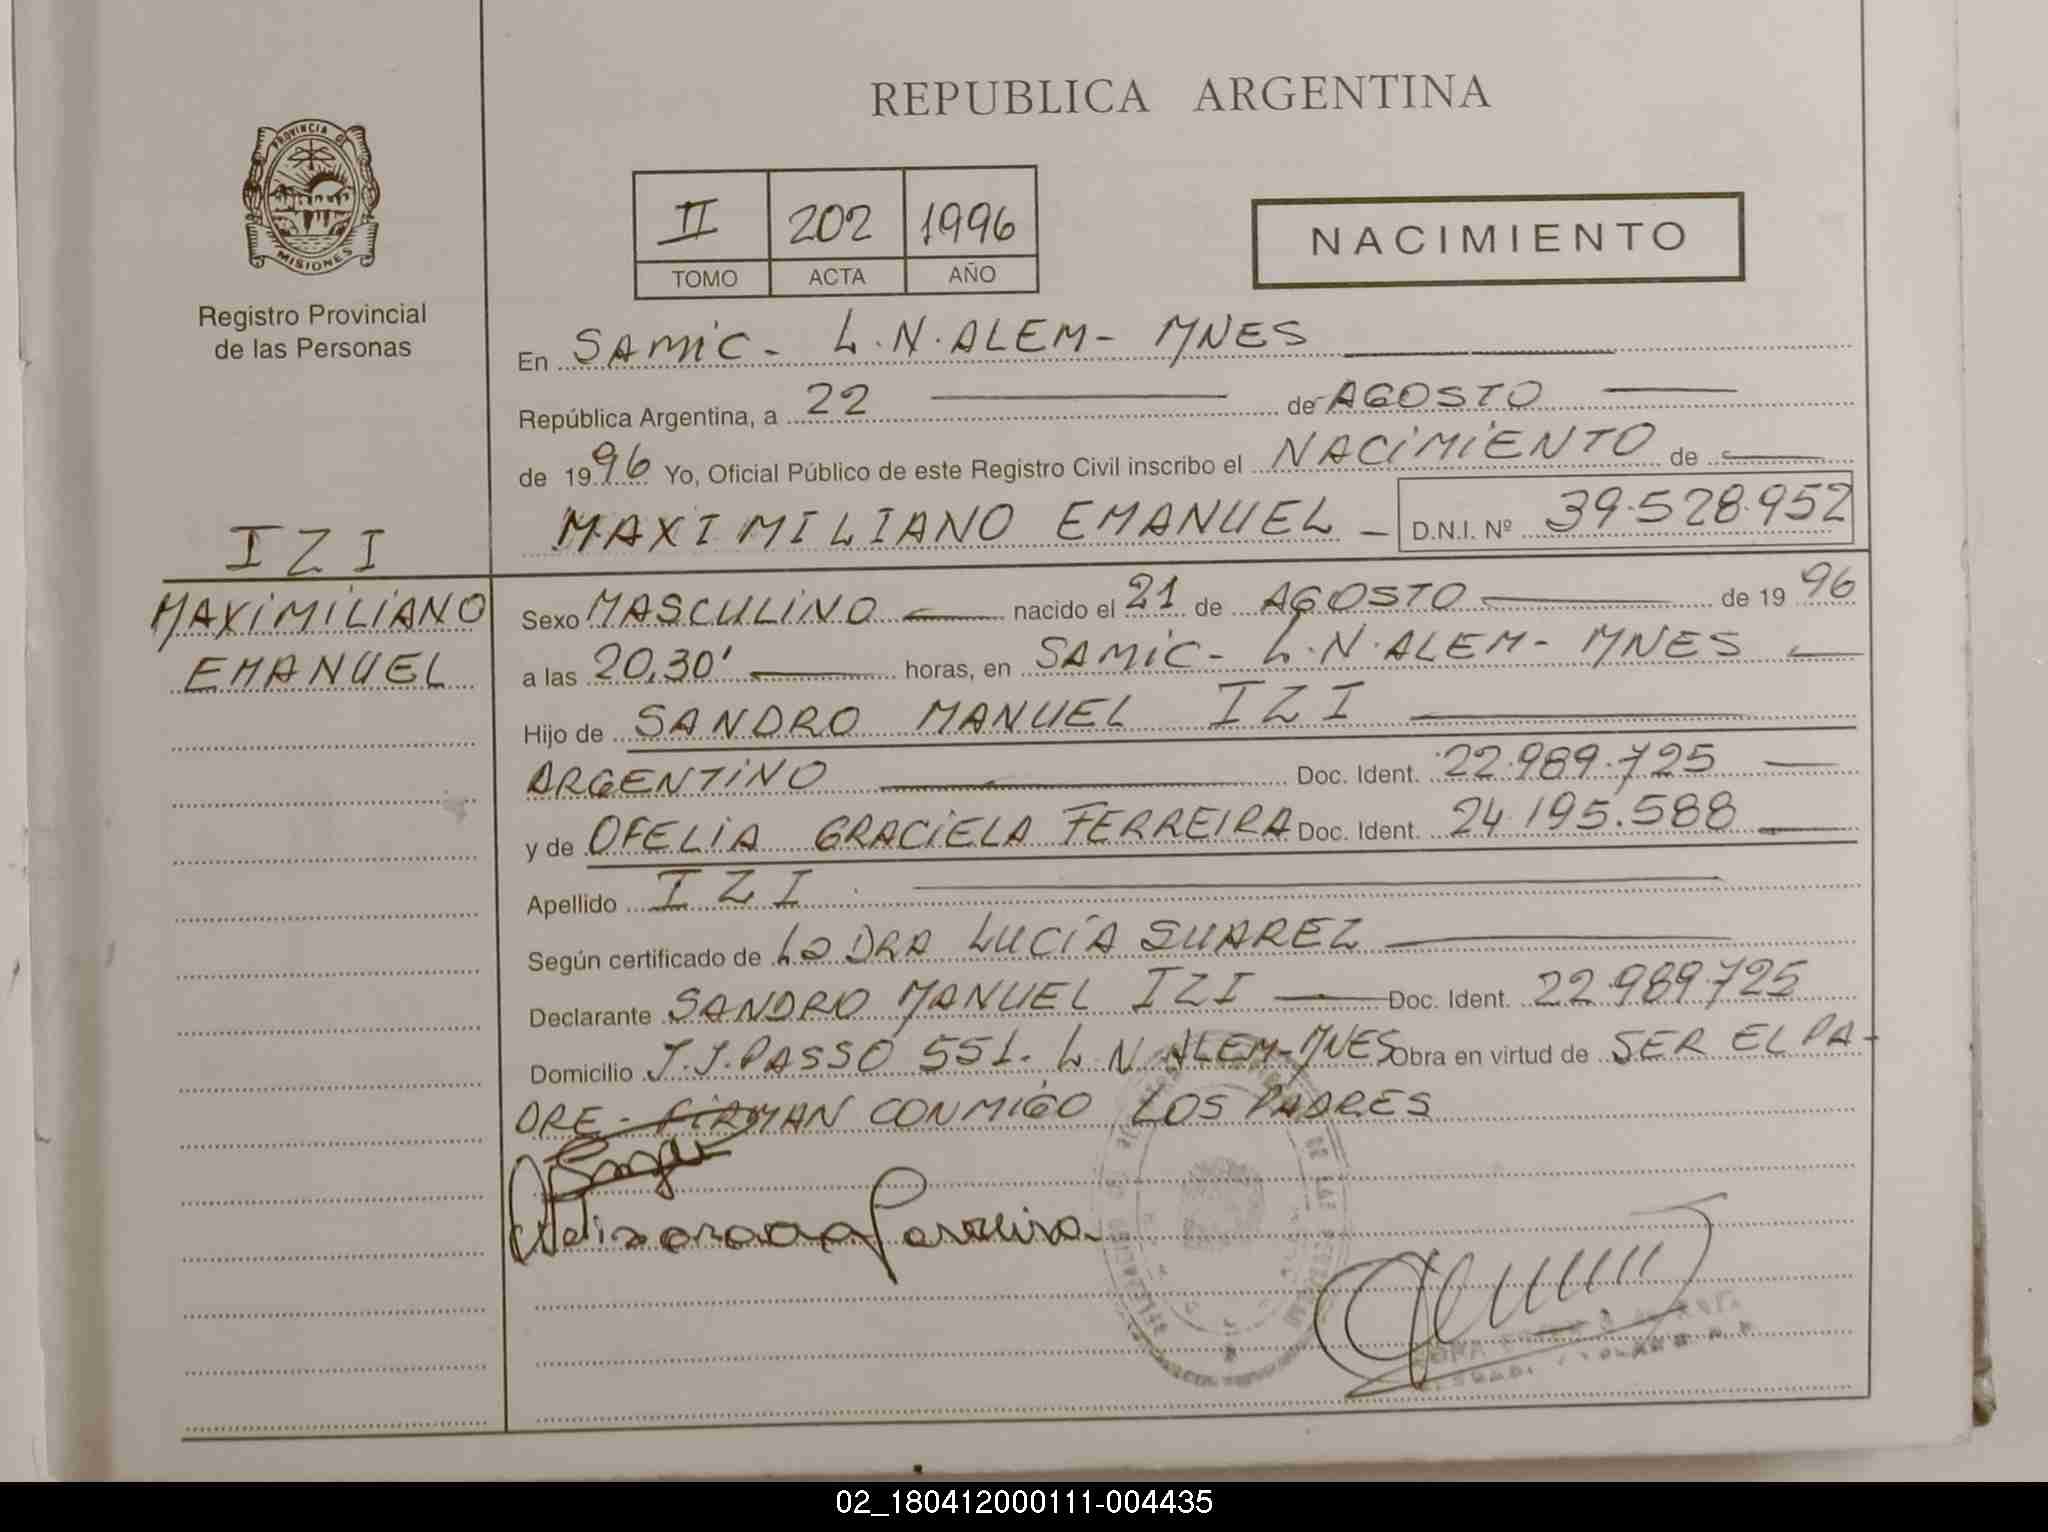 REPUBLICA ARGENTINA
PROVINCIA DE
MISIONES
Registro Provincial
de las Personas
II 202 1996
TOMO ACTA AÑO
NACIMIENTO
En SAMIC - L.N.ALEM - MNES
República Argentina, a 22 de AGOSTO
de 1996 Yo, Oficial Público de este Registro Civil inscribo el NACIMIENTO de
MAXIMILIANO EMANUEL - D.N.I. Nº 39.528.952
IZI
MAXIMILIANO
EMANUEL
Sexo MASCULINO nacido el 21 de AGOSTO de 1996
a las 20,30' horas, en SAMIC - L.N.ALEM - MNES
Hijo de SANDRO MANUEL IZI
ARGENTINO Doc. Ident. 22.989.725
y de OFELIA GRACIELA FERREIRA Doc. Ident. 24.195.588
Apellido IZI
Según certificado de La DRA LUCÍA SUAREZ
Declarante SANDRO MANUEL IZI Doc. Ident. 22.989.725
Domicilio J.J.PASSO 551. L.N ALEM-MNES Obra en virtud de SER EL PA-
DRE - FIRMAN CONMIGO LOS PADRES
02_180412000111-004435